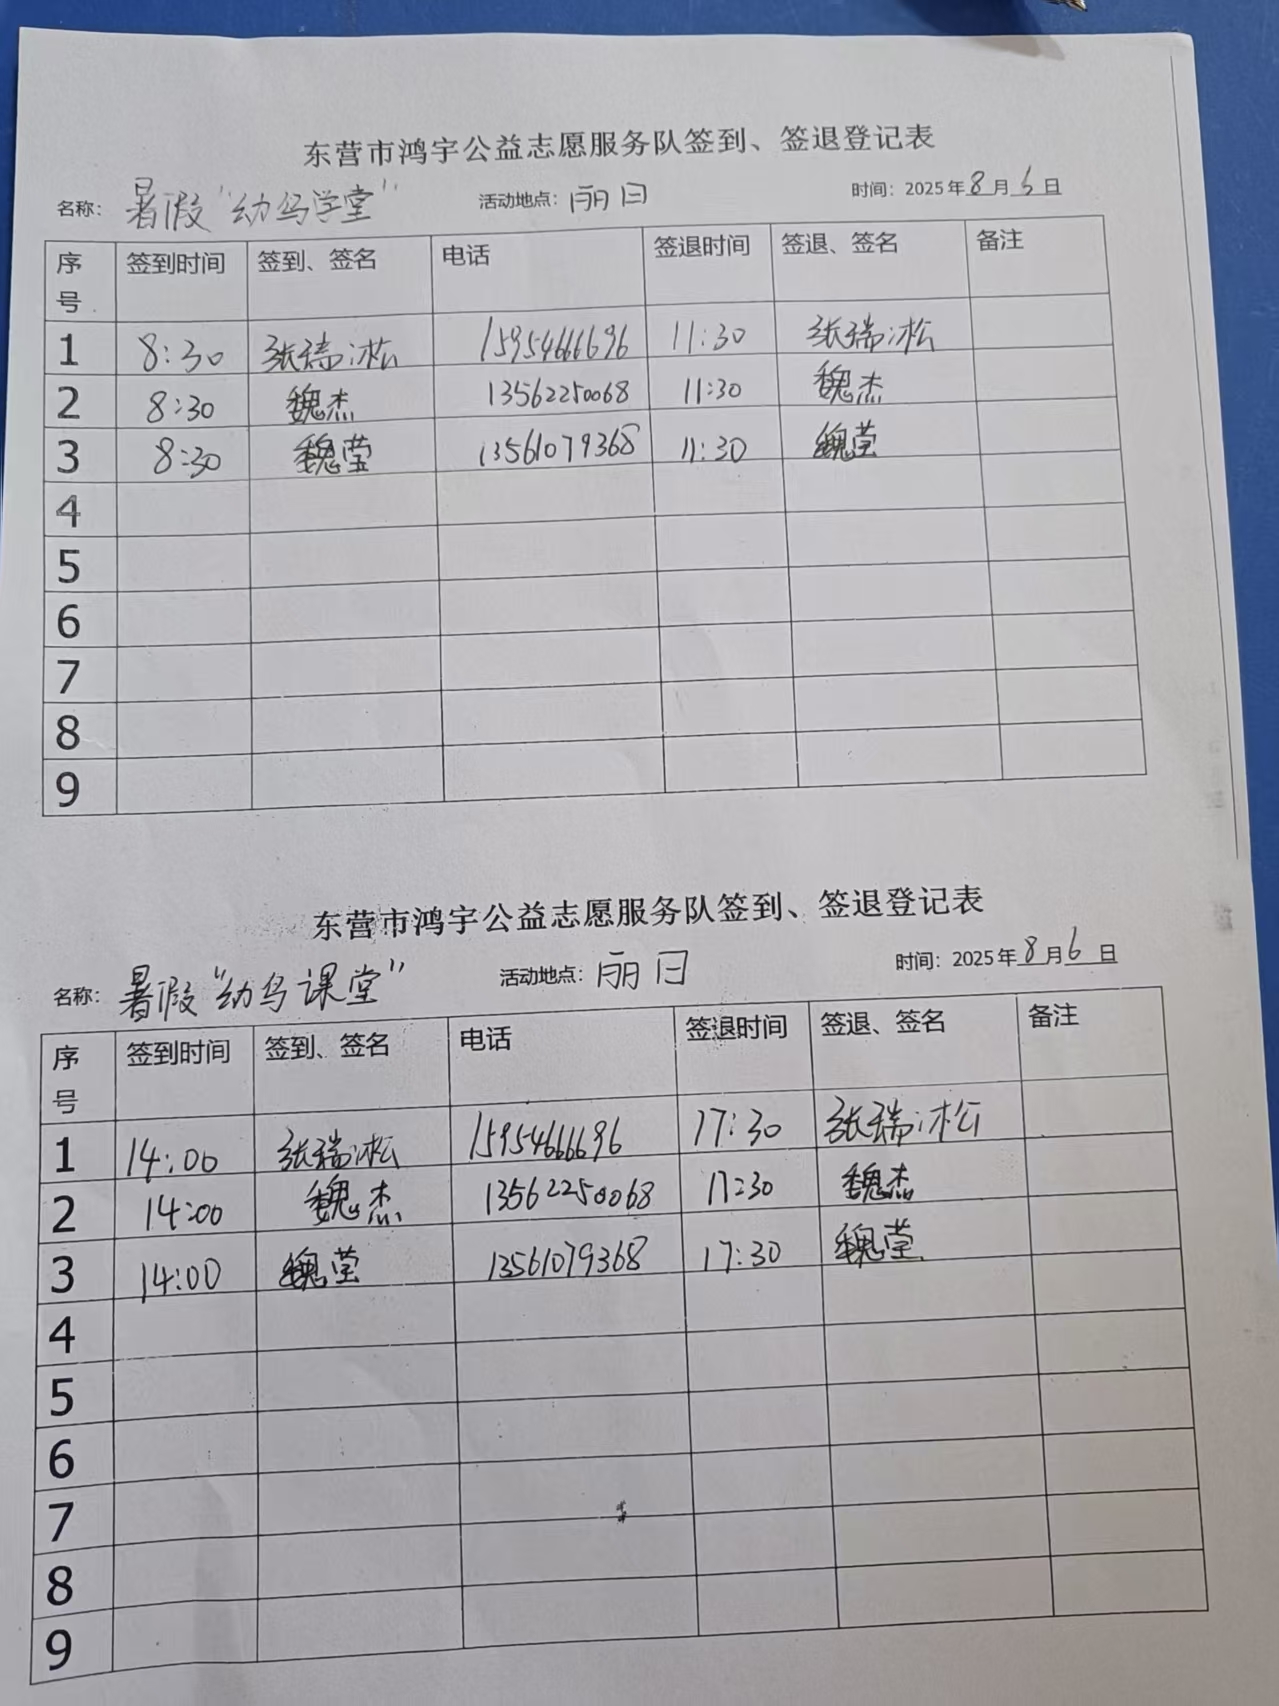 东营市鸿宇公益志愿服务队签到、签退登记表
名称: 暑假“幼鸟学堂” 活动地点: 时间: 2025年8月6日
序号 签到时间 签到、签名 电话 签退时间 签退、签名 备注
1 8:30 张瑞松 15954666696 11:30 张瑞松
2 8:30 魏杰 13562250068 11:30 魏杰
3 8:30 魏莹 13561079368 11:30 魏莹
4
5
6
7
8
9
东营市鸿宇公益志愿服务队签到、签退登记表
名称: 暑假“幼鸟课堂” 活动地点: 时间: 2025年8月6日
序号 签到时间 签到、签名 电话 签退时间 签退、签名 备注
1 14:00 张瑞松 15954666696 17:30 张瑞松
2 14:00 魏杰 13562250068 17:30 魏杰
3 14:00 魏莹 13561079368 17:30 魏莹
4
5
6
7
8
9